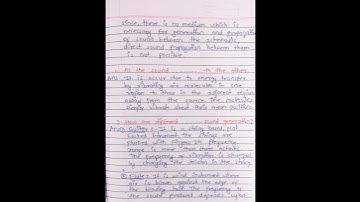 since, there is no medium which is
necessary for generation and propagation
of sound between the astronauts
direct sound propagation between them
is not possible.
2. As the sound to the others
Ans It is occur due to energy transfer
by vibrating air molecules in one
region to those in the adjacent region
away from the source. The molecules
simply vibrate about their mean position
3. How are different sound generating
Ans Guitar :- It is a string based,
instrument the strings are
plucked with fingers. Its frequency
range is more than three octaves
The frequency of vibration is changed
by changing the tension in the string
Flute :- It is wind instrument where
air is blown against the edge of
the blowing hole. The frequency of
the sound produced depends upon